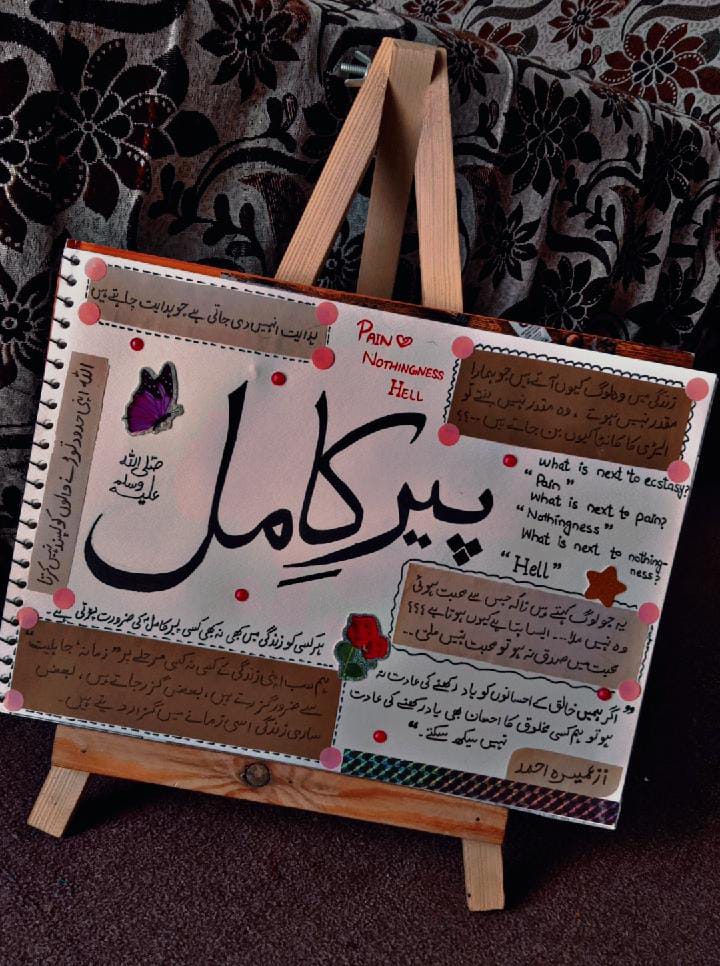 ہدایت انہیں دی جاتی ہے جو ہدایت چاہتے ہیں
PAIN ♡
NOTHINGNESS
HELL
زندگی میں وہ لوگ کیوں آتے ہیں جو ہمارا
مقدر نہیں ہوتے ، وہ مقدر نہیں بنتے تو
ایڑی کا کانٹا کیوں بن جاتے ہیں --؟؟
اللہ اپنی حدود توڑنے والوں کو پسند نہیں کرتا
صلی اللہ
علیہ وسلم
پیرِ کامل
what is next to ecstasy?
"Pain"
what is next to pain?
"Nothingness"
What is next to nothing-
ness?
"Hell"
یہ جو لوگ کہتے ہیں ناکہ جس سے محبت ہوئی
وہ نہیں ملا... ایسا پتا ہے کیوں ہوتا ہے ؟؟؟
محبت میں صدق نہ ہو تو محبت نہیں ملتی..
ہر کسی کو زندگی میں کبھی نہ کبھی کسی پیر کامل کی ضرورت پڑتی ہے-
ہم سب اپنی زندگی کے کسی نہ کسی مرحلے پر "زمانہ جاہلیت"
سے ضرور گزرتے ہیں، بعض گزر جاتے ہیں، بعض
ساری زندگی اسی زمانے میں گزار دیتے ہیں-
"اگر ہمیں خالق کے احسانوں کو یاد رکھنے کی عادت نہ
ہو تو ہم کسی مخلوق کا احسان بھی یاد رکھنے کی عادت
نہیں سیکھ سکتے۔"
از عمیرہ احمد